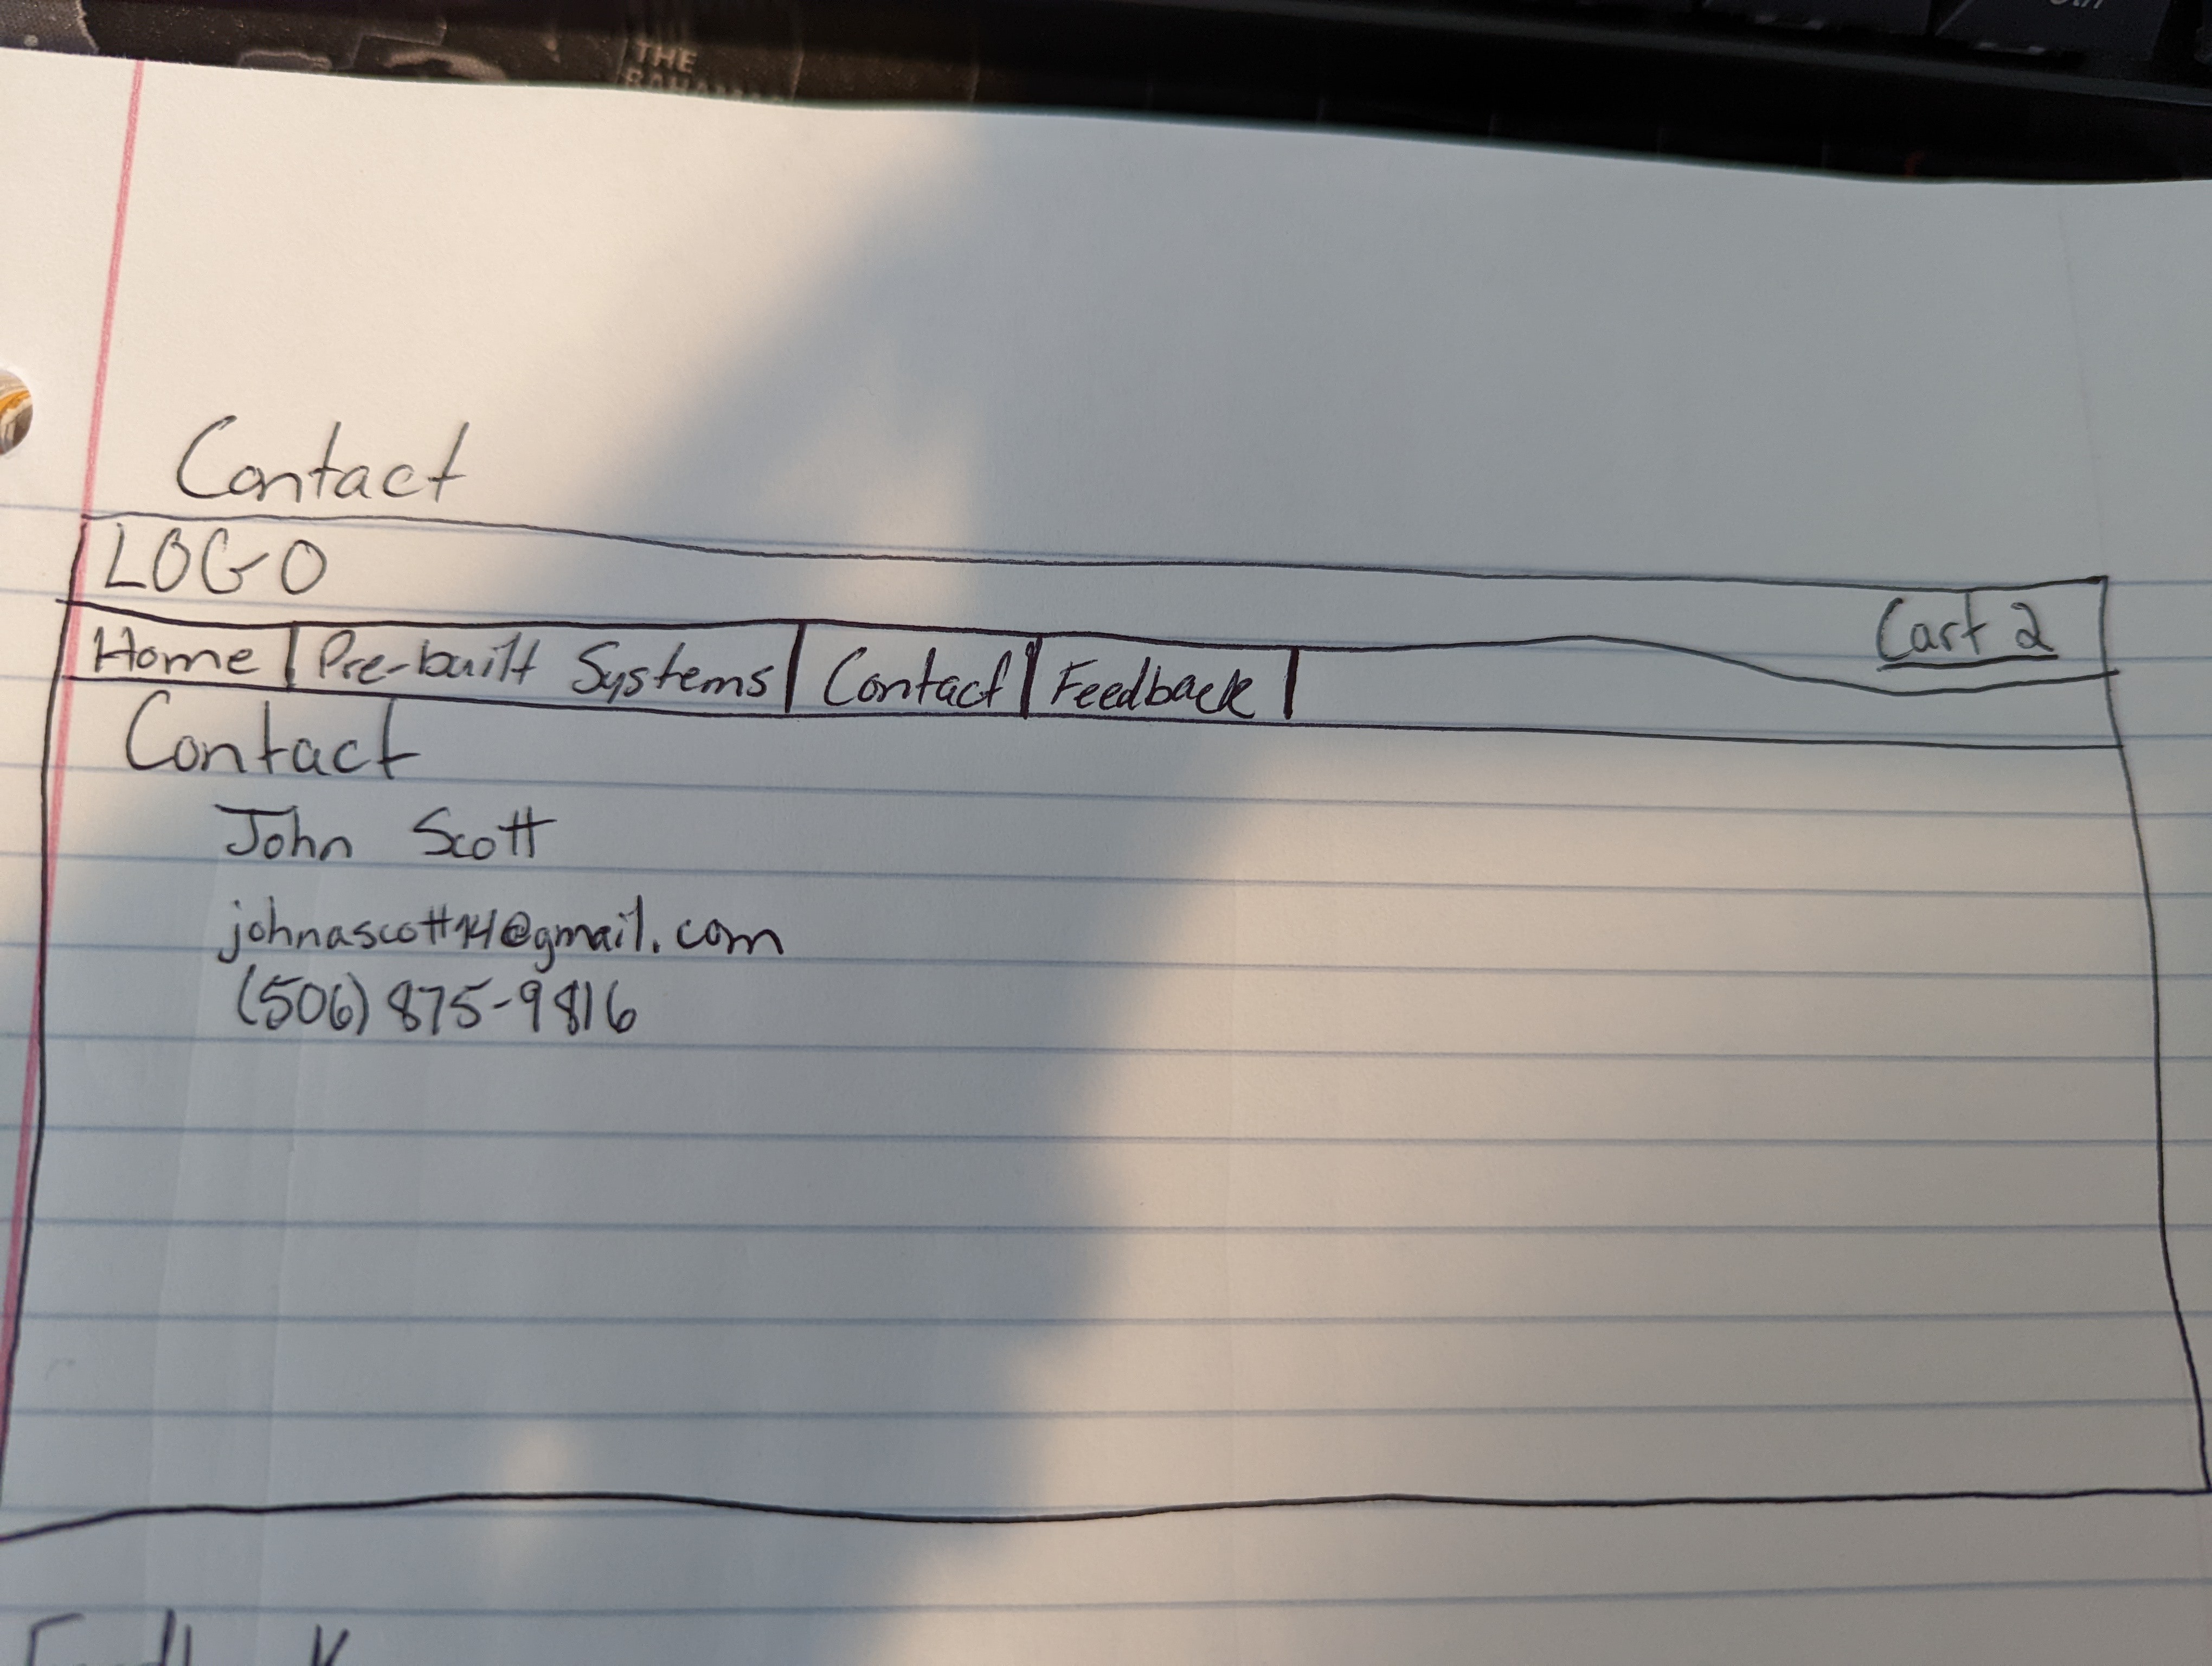 THE
Contact
LOGO
Cart 2
Home Pre-built Systems Contact Feedback
Contact
John Scott
johnascott14@gmail.com
(506) 875-9816